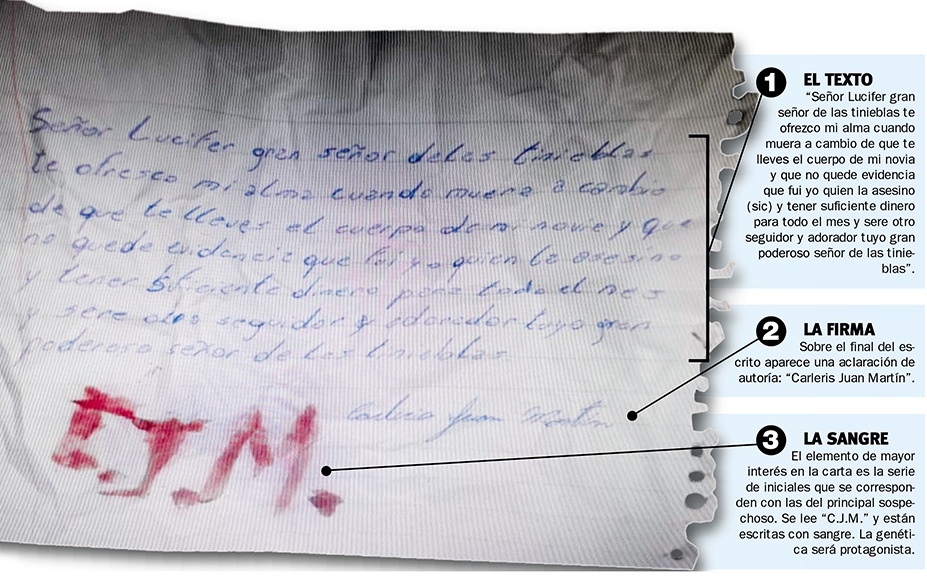 Señor Lucifer gran señor de las tinieblas
te ofresco mi alma cuando muera a cambio
de que te lleves el cuerpo de mi novia y que
no quede evidencia que fui yo quien la asesino
y tener suficiente dinero para todo el mes
y sere otro seguidor y adorador tuyo gran
poderoso señor de las tinieblas
Carleris Juan Martín
C.J.M.
1 EL TEXTO
“Señor Lucifer gran
señor de las tinieblas te
ofrezco mi alma cuando
muera a cambio de que te
lleves el cuerpo de mi novia
y que no quede evidencia
que fui yo quien la asesino
(sic) y tener suficiente dinero
para todo el mes y sere otro
seguidor y adorador tuyo gran
poderoso señor de las tinie-
blas”.
2 LA FIRMA
Sobre el final del es-
crito aparece una aclaración de
autoría: “Carleris Juan Martín”.
3 LA SANGRE
El elemento de mayor
interés en la carta es la serie
de iniciales que se correspon-
den con las del principal sospe-
choso. Se lee “C.J.M.” y están
escritas con sangre. La genéti-
ca será protagonista.